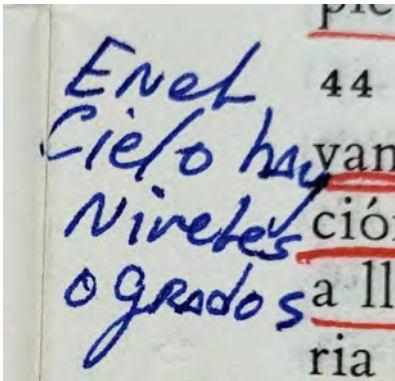 EN el
Cielo hay
Niveles
o grados
44
van
ción
a ll
ria